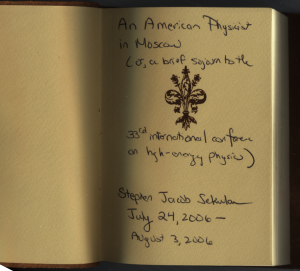 An American Physicist
in Moscow
(or, a brief sojourn to the
33rd international conference
on high-energy physics)
Stephen Jacob Sekula
July 24, 2006 —
August 3, 2006